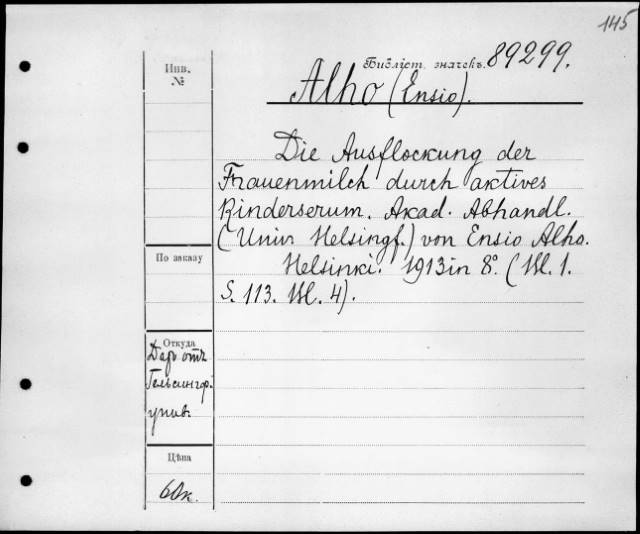 145
Инв.
№
Библіот. значекъ. 89299.
Alho (Ensio).
Die Ausflockung der
Frauenmilch durch aktives
Rinderserum. Akad. Abhandl.
(Univ Helsingf.) von Ensio Alho.
Helsinki. 1913 in 8°. (Bl. 1.
S. 113. Bl. 4).
По заказу
Откуда
Даръ отъ
Гельсингф.
унив.
Цѣна
60к.